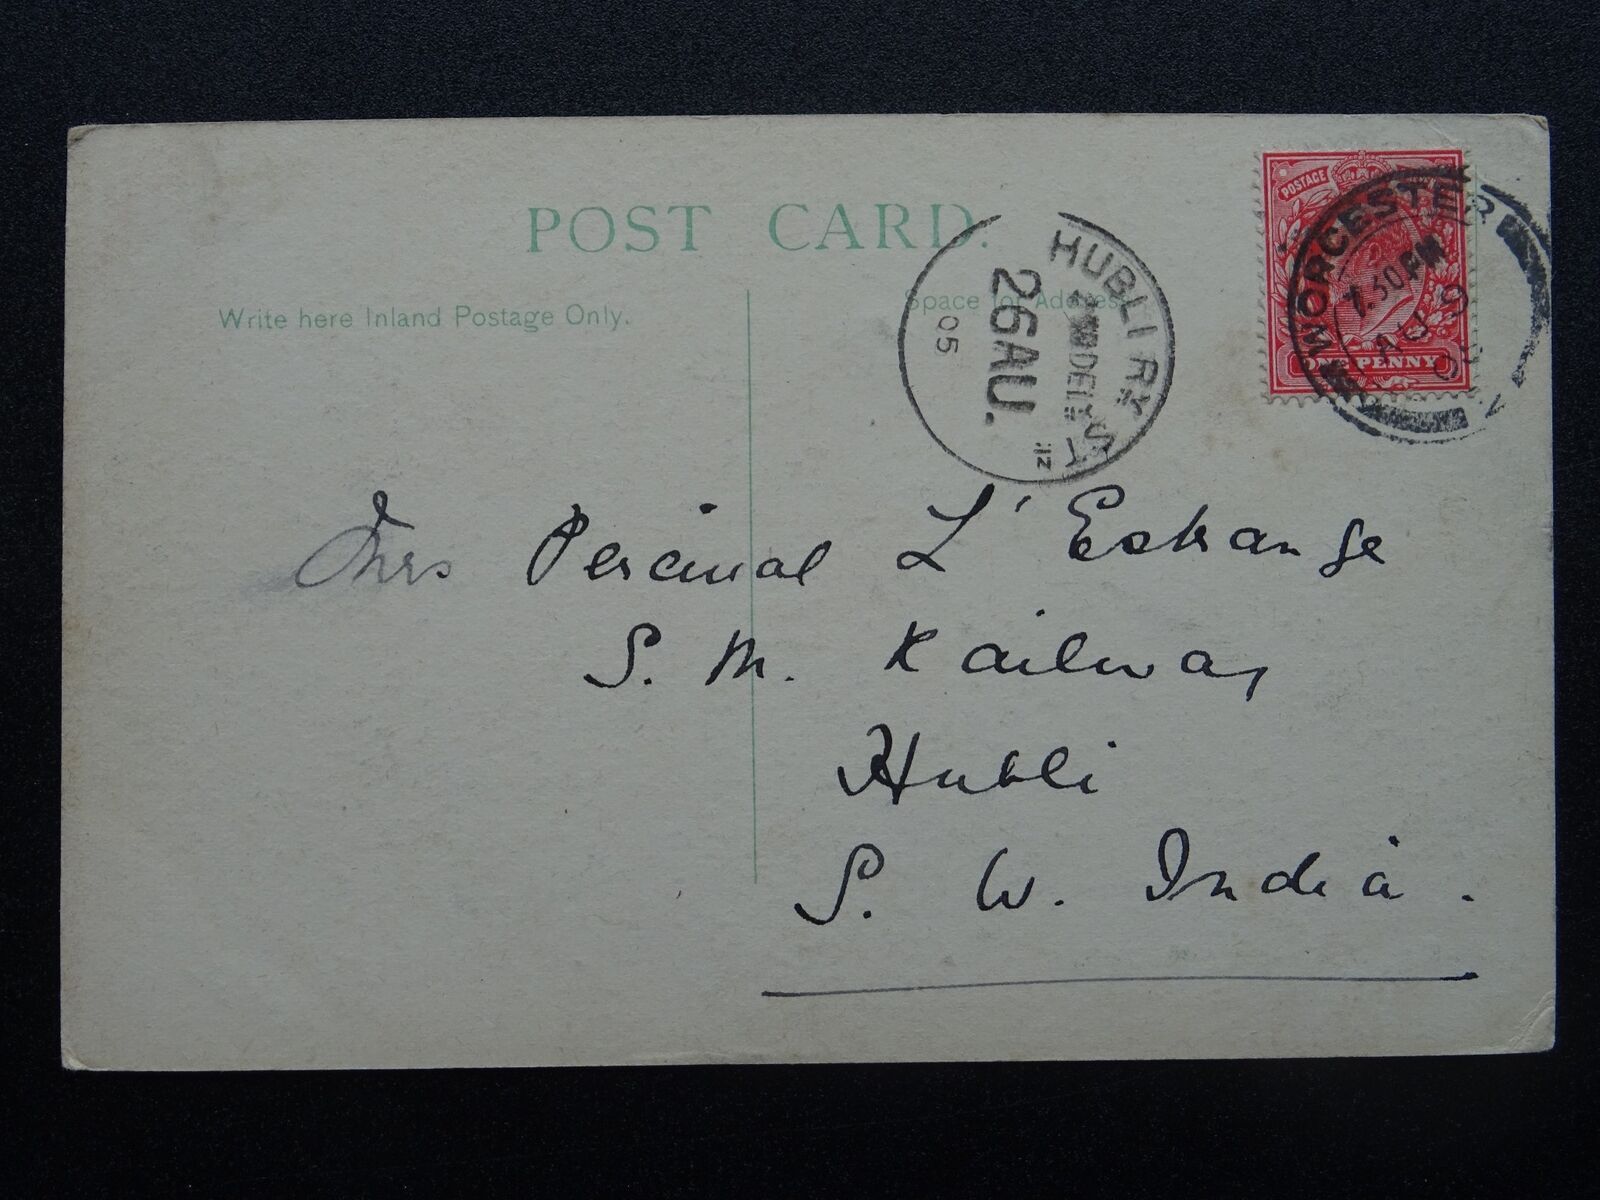 POST CARD.
Write here Inland Postage Only.
Space for Address
HUBLI RY ST
26 AU.
05
POSTAGE
ONE PENNY
WORCESTER
7.30 PM
AU 9
05
Mrs Percival L'Estrange
S. M. Railway
Hubli
S. W. India.